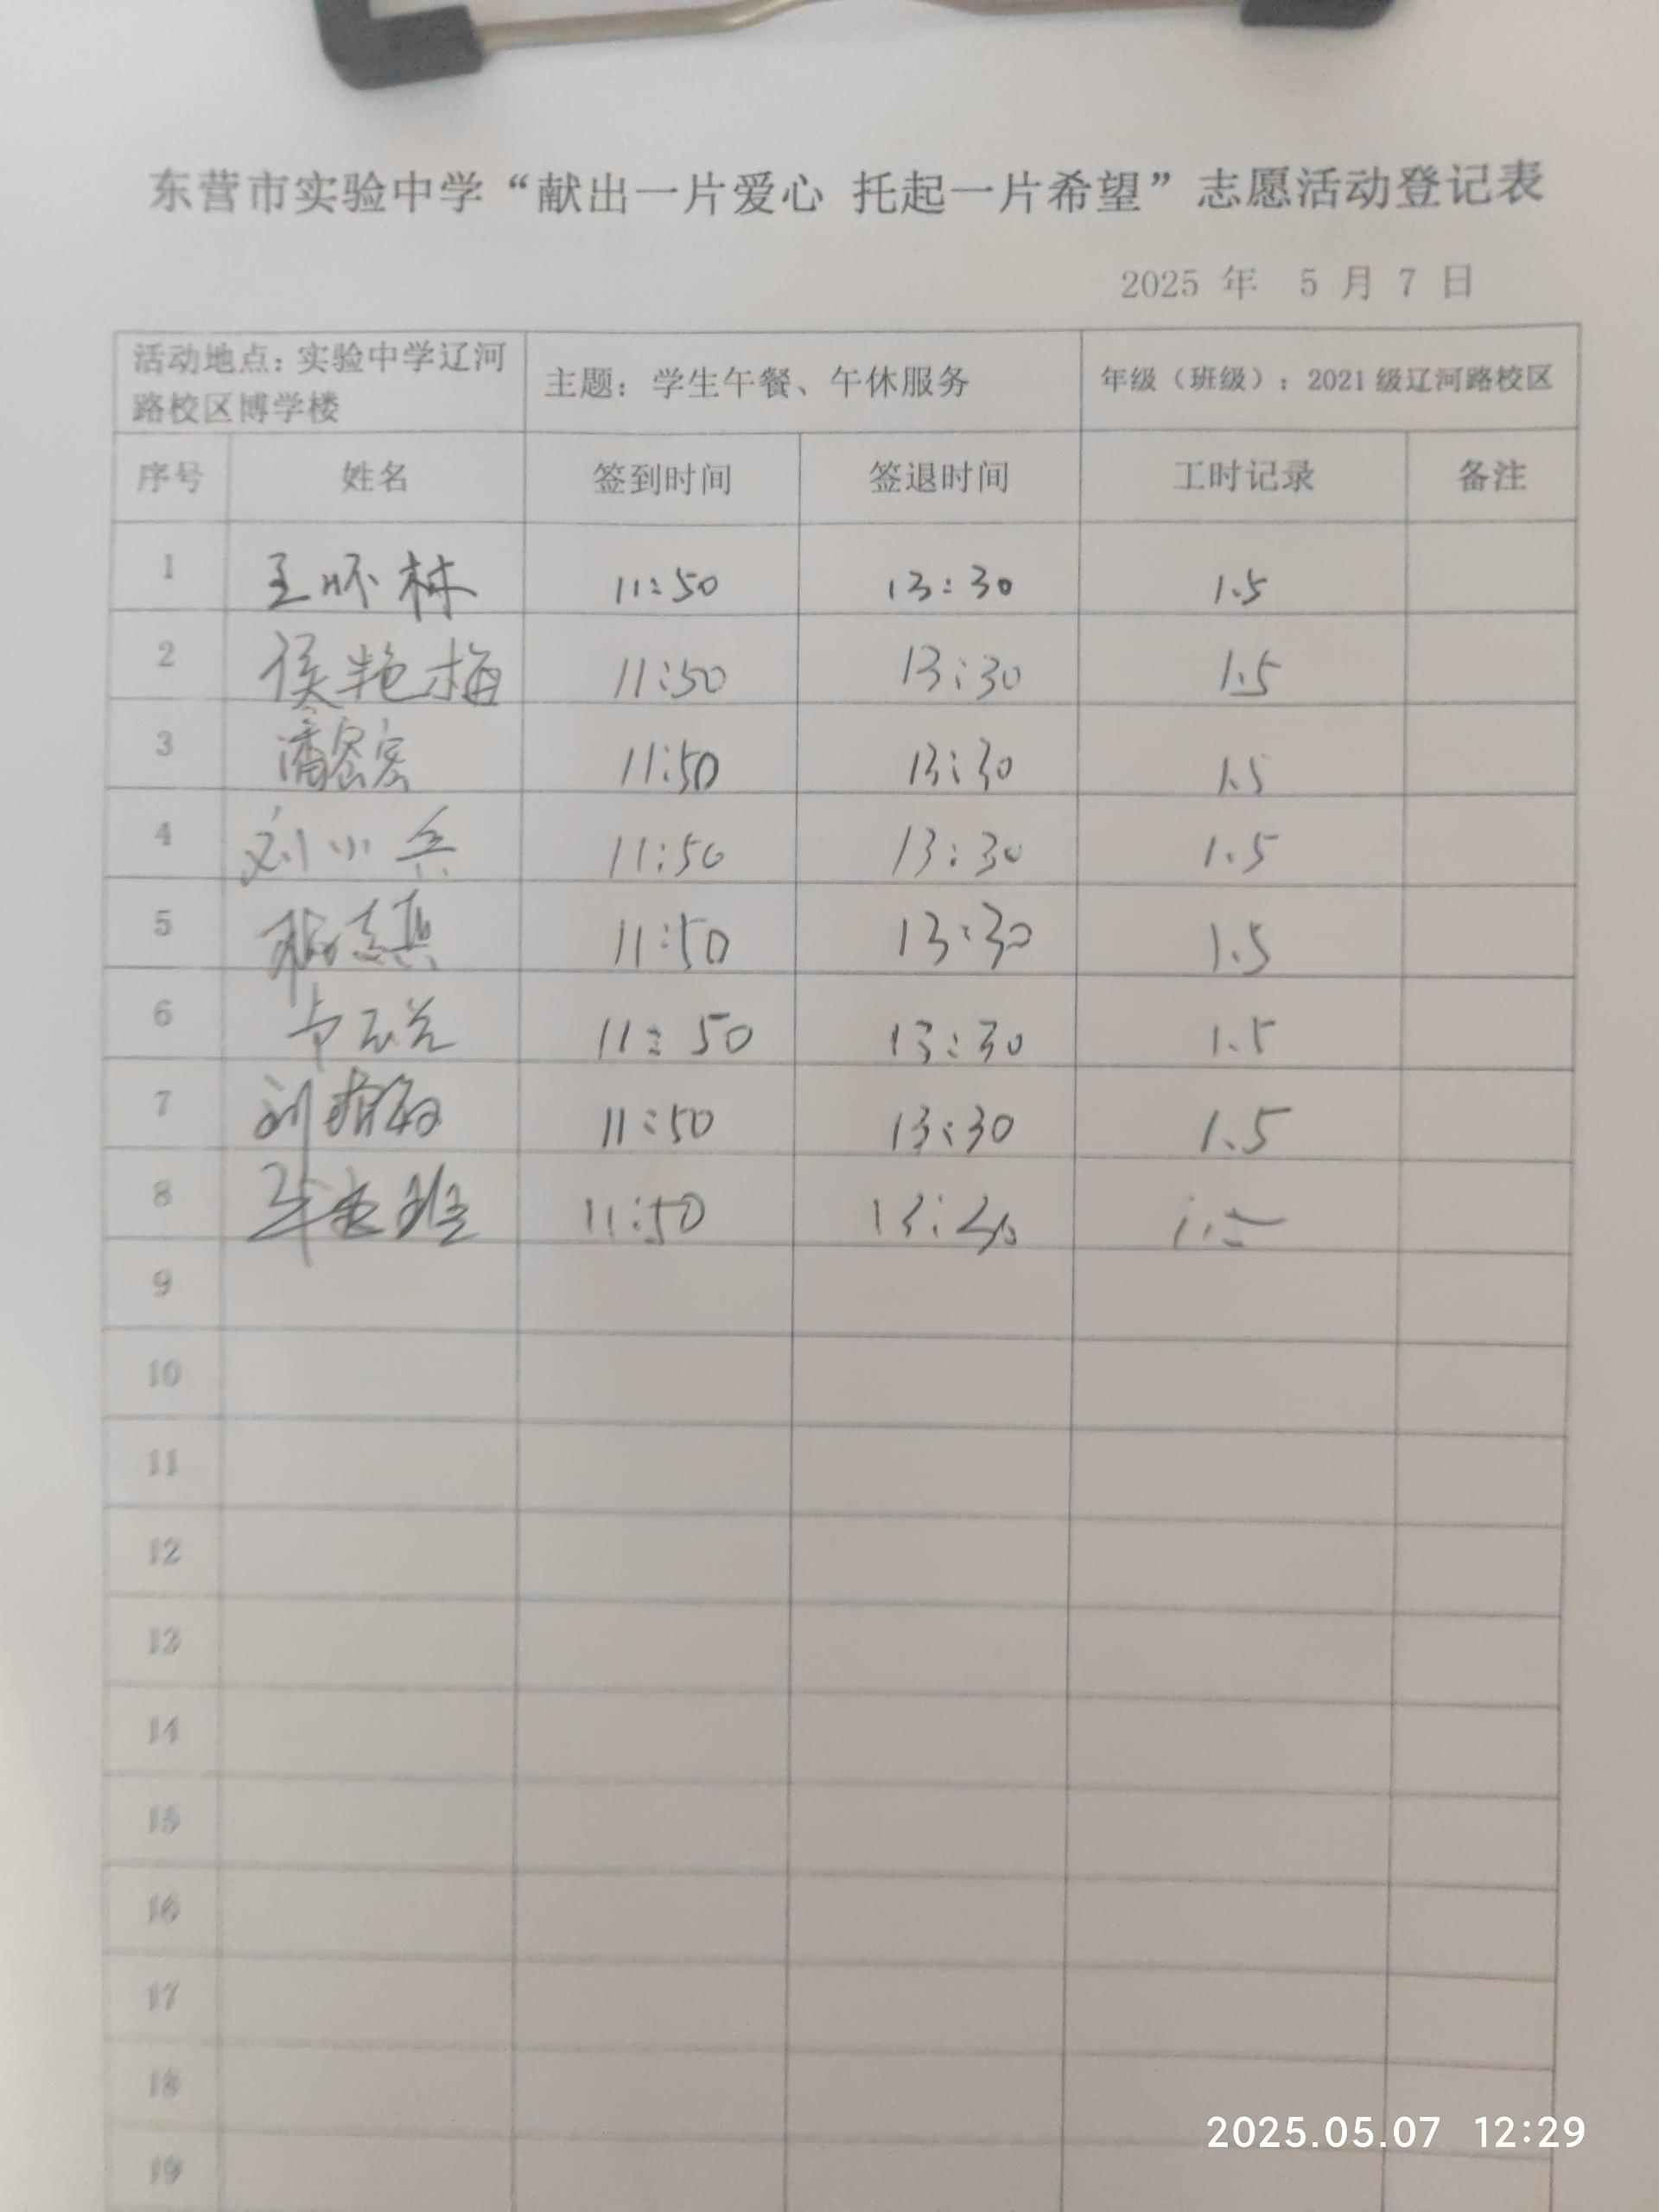 东营市实验中学“献出一片爱心 托起一片希望”志愿活动登记表
2025 年 5 月 7 日
活动地点：实验中学辽河路校区博学楼 主题：学生午餐、午休服务 年级（班级）：2021级辽河路校区
序号 姓名 签到时间 签退时间 工时记录 备注
1 王怀林 11:50 13:30 1.5
2 侯艳梅 11:50 13:30 1.5
3 潘宏 11:50 13:30 1.5
4 刘小兵 11:50 13:30 1.5
5 11:50 13:30 1.5
6 11:50 13:30 1.5
7 刘 11:50 13:30 1.5
8 11:50 1.5
9
10
11
12
13
14
15
16
17
18
19
2025.05.07 12:29